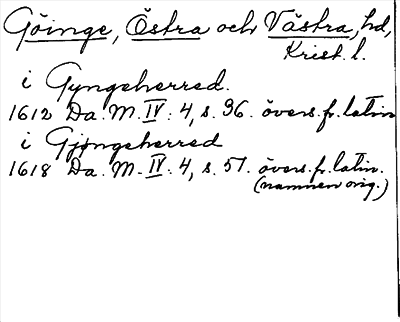 Göinge, Östra och Västra, hd,
Krist. l.
i Gyngeherred.
1612 Da. M. IV: 4, s. 36. övers. fr. latin
i Gjøngeherred
1618 Da. M. IV: 4, s. 57. övers. fr. latin.
(namnen orig.)